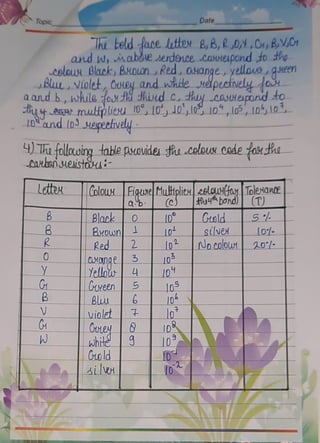 Topic Date
The bold face letter B, B, R, O, Y, Gr, B, V, Gr
and W, in above sentence correspond to the
colour Black, Brown, Red, orange, yellow, green
, Blue, Violet, Grey and white respectively for
a and b, while for the third c, they correspond to
they multipliers 10⁰, 10¹, 10², 10³, 10⁴, 10⁵, 10⁶, 10⁷,
10⁸ and 10⁹ respectively.
4) The following table provides the colour code for the
carbon resistors:-
Letter Colour Figure a.b. Multiplier (c) colour (for the 4th band) Tolerance (T)
B Black 0 10⁰ Gold 5 %
B Brown 1 10¹ silver 10%
R Red 2 10² No colour 20%
O orange 3 10³
Y Yellow 4 10⁴
G Green 5 10⁵
B Blue 6 10⁶
V violet 7 10⁷
G Grey 8 10⁸
W white 9 10⁹
Gold 10⁻¹
silver 10⁻²